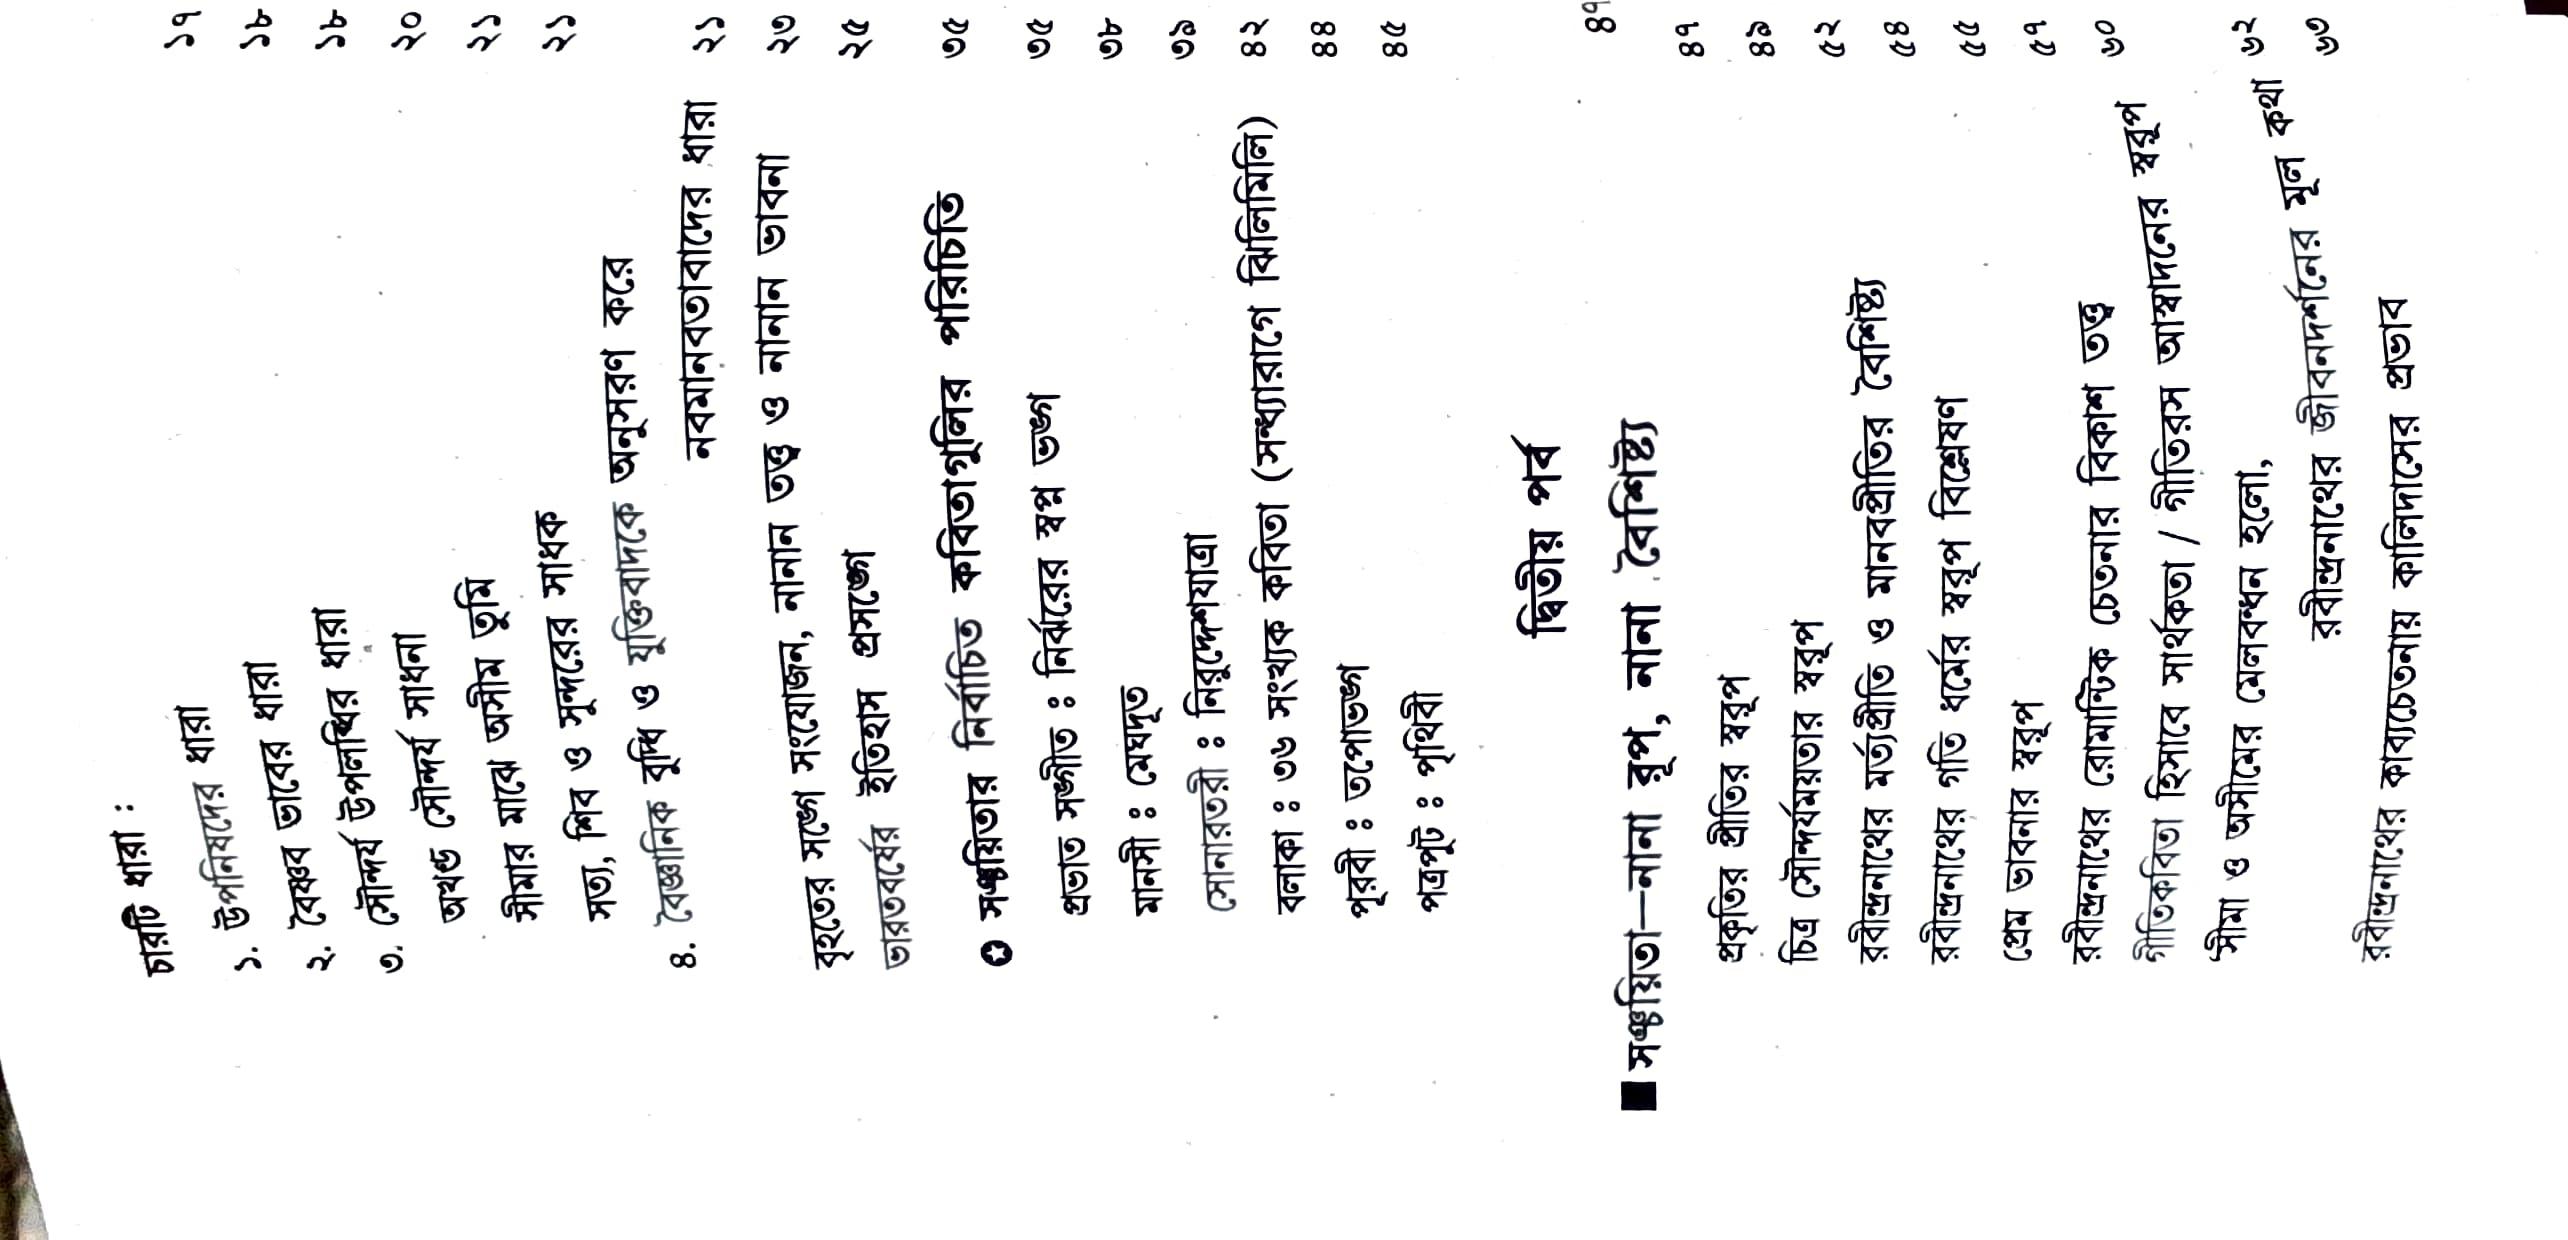 চারটি ধারা :
১. উপনিষদের ধারা ১৭
২. বৈষ্ণব ভাবের ধারা ১৮
৩. সৌন্দর্য উপলব্ধির ধারা ১৮
অখণ্ড সৌন্দর্য সাধনা ২০
সীমার মাঝে অসীম তুমি ২১
সত্য, শিব ও সুন্দরের সাধক ২১
৪. বৈজ্ঞানিক বুদ্ধি ও যুক্তিবাদকে অনুসরণ করে
নবমানবতাবাদের ধারা ২১
বৃহতের সঙ্গে সংযোজন, নানান তত্ত্ব ও নানান ভাবনা ২৩
ভারতবর্ষের ইতিহাস প্রসঙ্গে ২৫
✪ সঞ্চয়িতার নির্বাচিত কবিতাগুলির পরিচিতি ৩৫
প্রভাত সঙ্গীত ঃ নির্ঝরের স্বপ্ন ভঙ্গ ৩৫
মানসী ঃ মেঘদূত ৩৮
সোনারতরী ঃ নিরুদ্দেশযাত্রা ৩৯
বলাকা ঃ ৩৬ সংখ্যক কবিতা (সন্ধ্যারাগে ঝিলিমিলি) ৪২
পূরবী ঃ তপোভঙ্গ ৪৪
পত্রপুট ঃ পৃথিবী ৪৫
দ্বিতীয় পর্ব
■ সঞ্চয়িতা—নানা রূপ, নানা বৈশিষ্ট্য ৪৭
প্রকৃতির প্রীতির স্বরূপ ৪৭
চিত্র সৌন্দর্যময়তার স্বরূপ ৪৯
রবীন্দ্রনাথের মর্ত্যপ্রীতি ও মানবপ্রীতির বৈশিষ্ট্য ৫২
রবীন্দ্রনাথের গতি ধর্মের স্বরূপ বিশ্লেষণ ৫৪
প্রেম ভাবনার স্বরূপ ৫৫
রবীন্দ্রনাথের রোমান্টিক চেতনার বিকাশ তত্ত্ব ৫৭
গীতিকবিতা হিসাবে সার্থকতা / গীতিরস আস্বাদনের স্বরূপ ৬০
'সীমা ও অসীমের মেলবন্ধন হলো,
রবীন্দ্রনাথের জীবনদর্শনের মূল কথা ৬২
রবীন্দ্রনাথের কাব্যচেতনায় কালিদাসের প্রভাব ৬৩